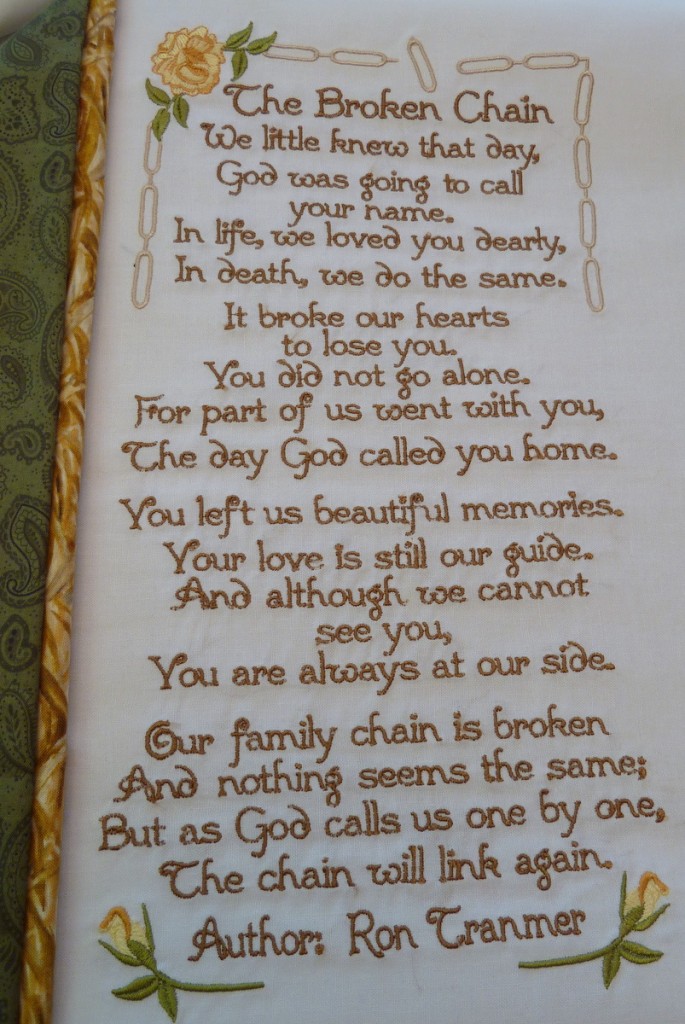 The Broken Chain
We little knew that day,
God was going to call
your name.
In life, we loved you dearly,
In death, we do the same.
It broke our hearts
to lose you.
You did not go alone.
For part of us went with you,
The day God called you home.
You left us beautiful memories.
Your love is still our guide.
And although we cannot
see you,
You are always at our side.
Our family chain is broken
And nothing seems the same;
But as God calls us one by one,
The chain will link again.
Author: Ron Tranmer